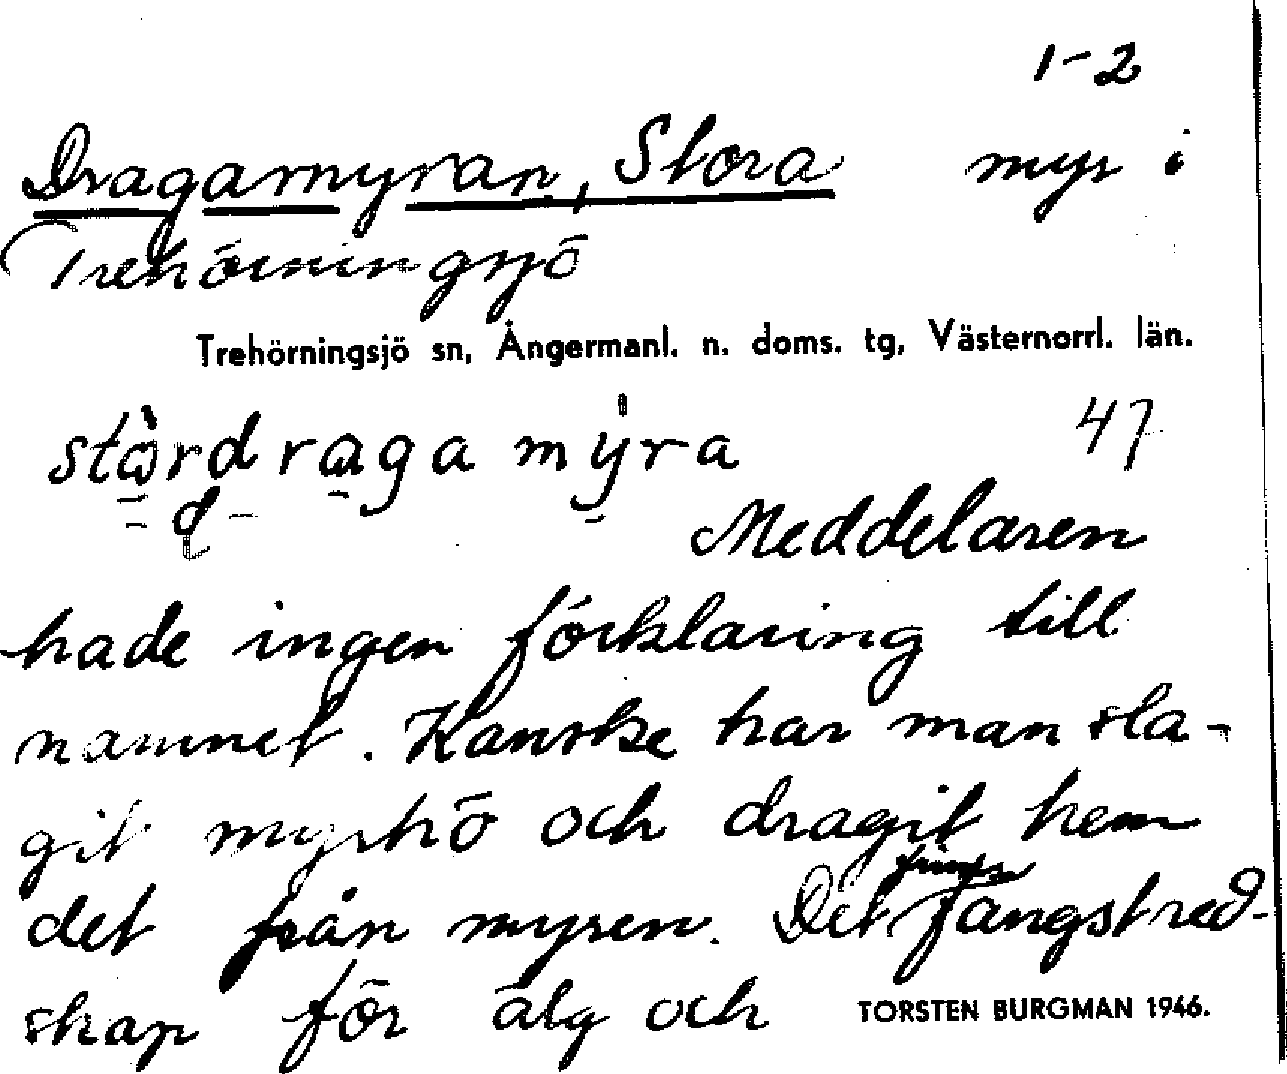 1-2
Dragamyran, Stora myr i
Trehörningsjö
Trehörningsjö sn, Ångermanl. n. doms. tg, Västernorrl. län.
stòrdraga mýra 47
d
Meddelaren
hade ingen förklaring till
namnet. Kanske har man sla-
git myrhö och dragit hem
det från myren. Det finns fångstred-
skap för älg och
TORSTEN BURGMAN 1946.